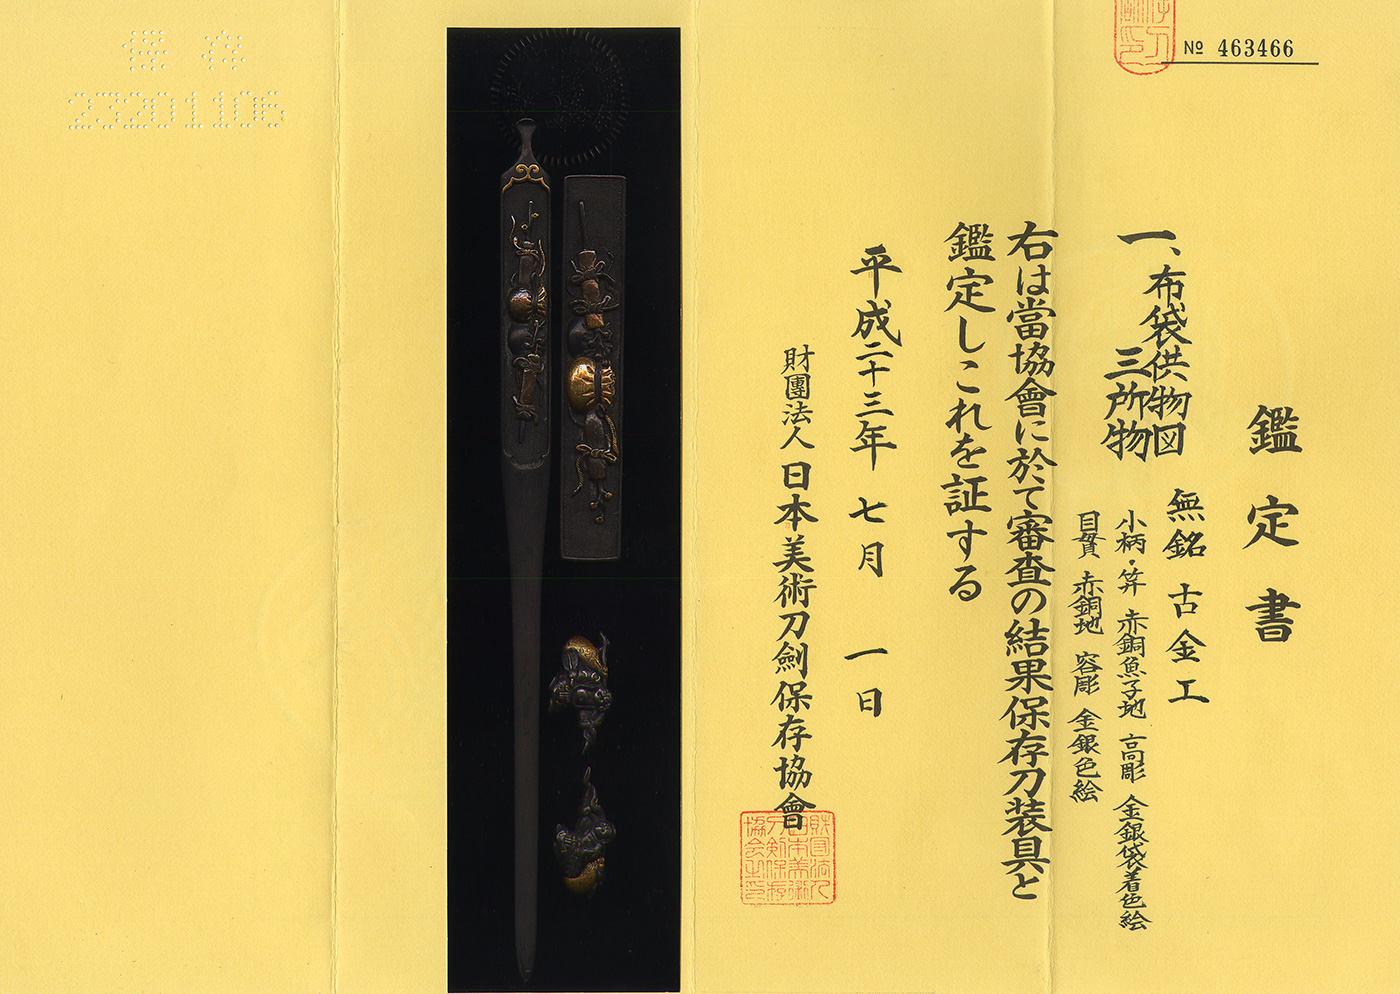 № 463466
鑑定書
一、布袋供物図 無銘 古金工
三所物
小柄・笄 赤銅魚子地 高彫 金銀袋着色絵
目貫 赤銅地 容彫 金銀色絵
右は當協會に於て審査の結果保存刀装具と
鑑定しこれを証する
平成二十三年 七月 一日
財團法人 日本美術刀劍保存協會
23201106